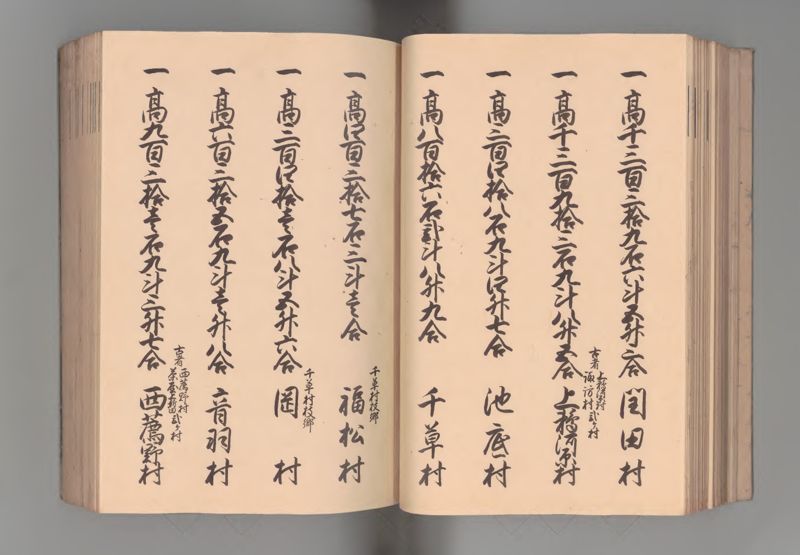 一 高千三百三拾九石六斗五升三合 閏田村
一 高千三百九拾三石九斗八升五合 古者 上鵜河原村 諏訪村 弐ヶ村 上鵜河原村
一 高三百四拾八石九斗四升七合 池底村
一 高八百拾六石弐斗八升九合 千草村
一 高四百三拾七石三斗壱合 千草村枝郷 福松村
一 高三百四拾壱石八斗五升六合 千草村枝郷 岡村
一 高六百三拾五石九斗壱升八合 音羽村
一 高九百三拾壱石九斗三升七合 古者 西薦野村 茶屋上新田 弐ヶ村 西薦野村